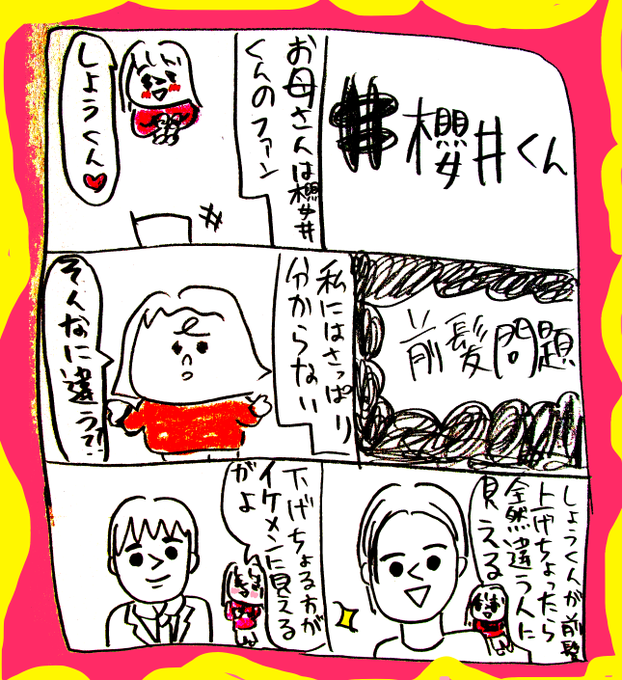 #櫻井くん
お母さんは櫻井
くんのファン
しょうくん♥
前髪問題
私にはさっぱり
分からない
そんなに違う?!
しょうくんが前髪
上げちょったら
全然違う人に
見える
下げちょる方が
イケメンに見える
がよ